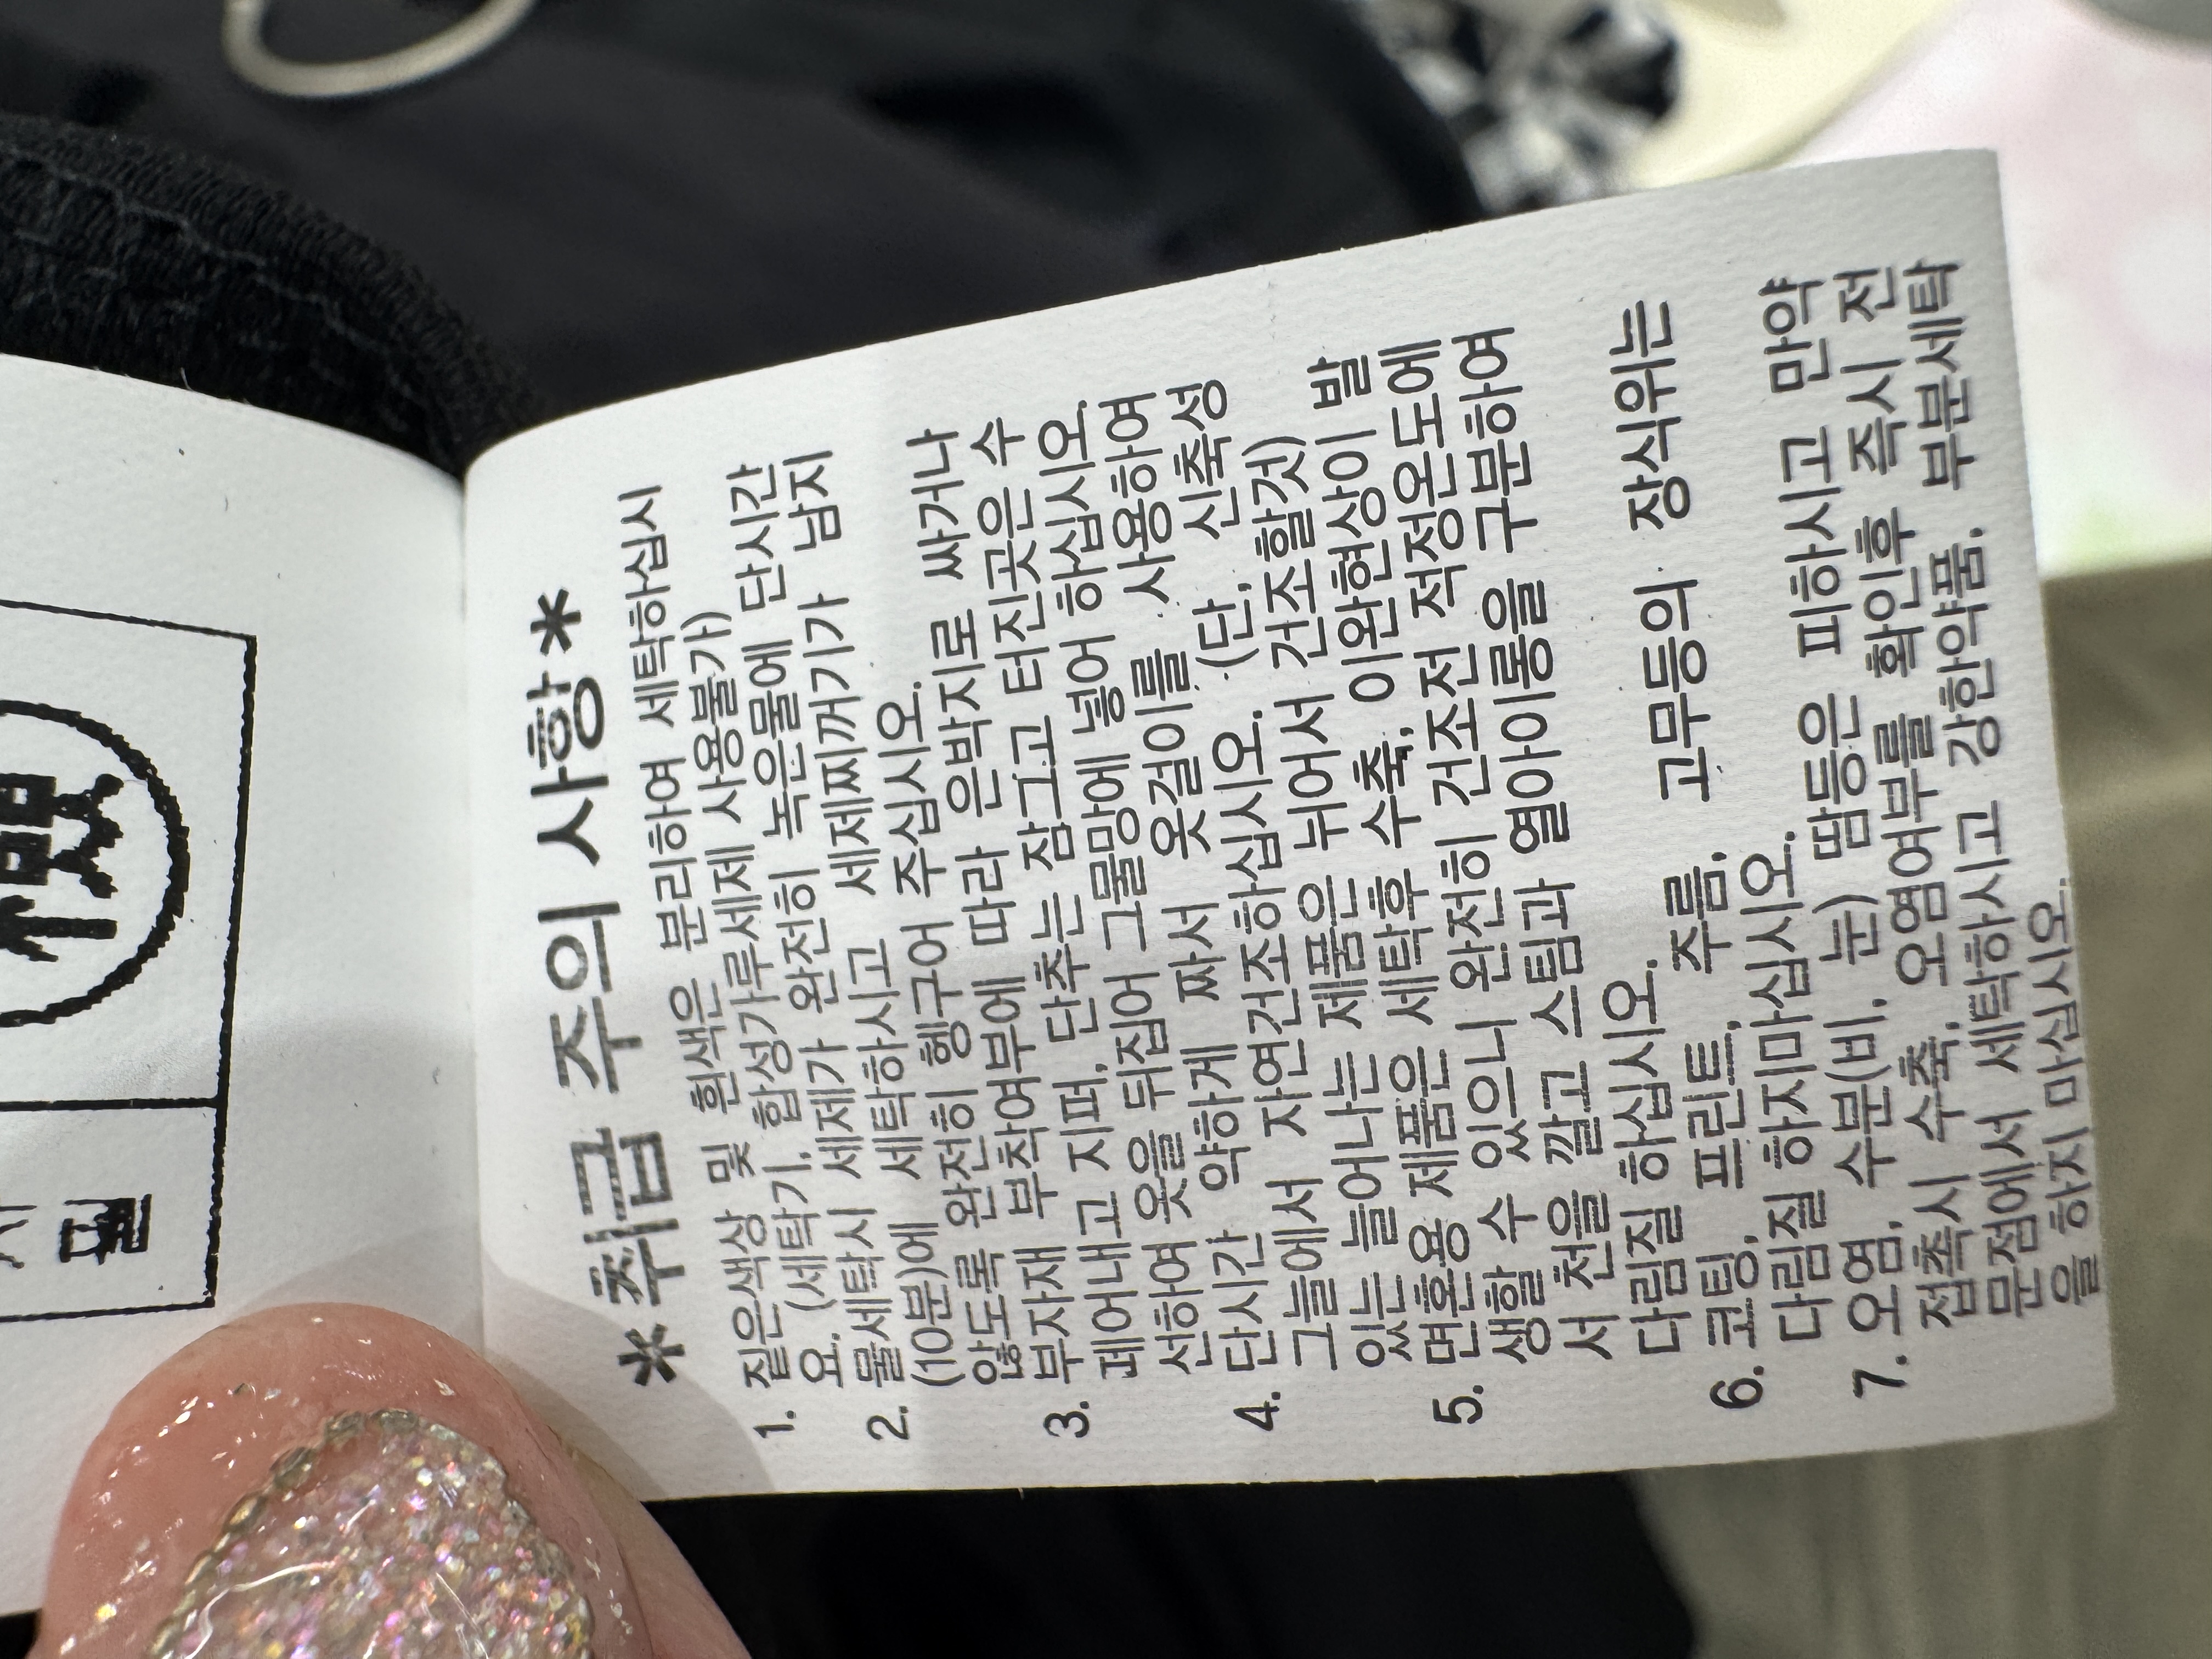 *취급 주의 사항*
1. 짙은색상 및 흰색은 분리하여 세탁하십시
요. (세탁기, 합성가루세제 사용불가)
2. 물세탁시 세제가 완전히 녹은물에 단시간
(10분)에 세탁하시고 세제찌꺼기가 남지
않도록 완전히 헹구어 주십시오.
3. 부자재 부착여부에 따라 은박지로 싸거나
페어내고 지퍼, 단추는 잠그고 터진곳은 수
선하여 옷을 뒤집어 그물망에 넣어 하십시오.
4. 단시간 약하게 짜서 옷걸이를 사용하여
그늘에서 자연건조하십시오. (단, 신축성
있는 늘어나는 제품은 뉘어서 건조할것)
5. 면혼용 제품은 세탁후 수축, 이완현상이 발
생할 수 있으니 완전히 건조전 적정온도에
서 천을 깔고 스팀과 열아이롱을 구분하여
다림질 하십시오.
6. 코팅, 프린트, 주름, 고무등의 장식위는
다림질 하지마십시오.
7. 오염, 수분(비, 눈) 땀등은 피하시고 만약
접촉시 수축, 오염여부를 확인후 즉시 전
문점에서 세탁하시고 강한약품, 부분세탁
을 하지 마십시오.